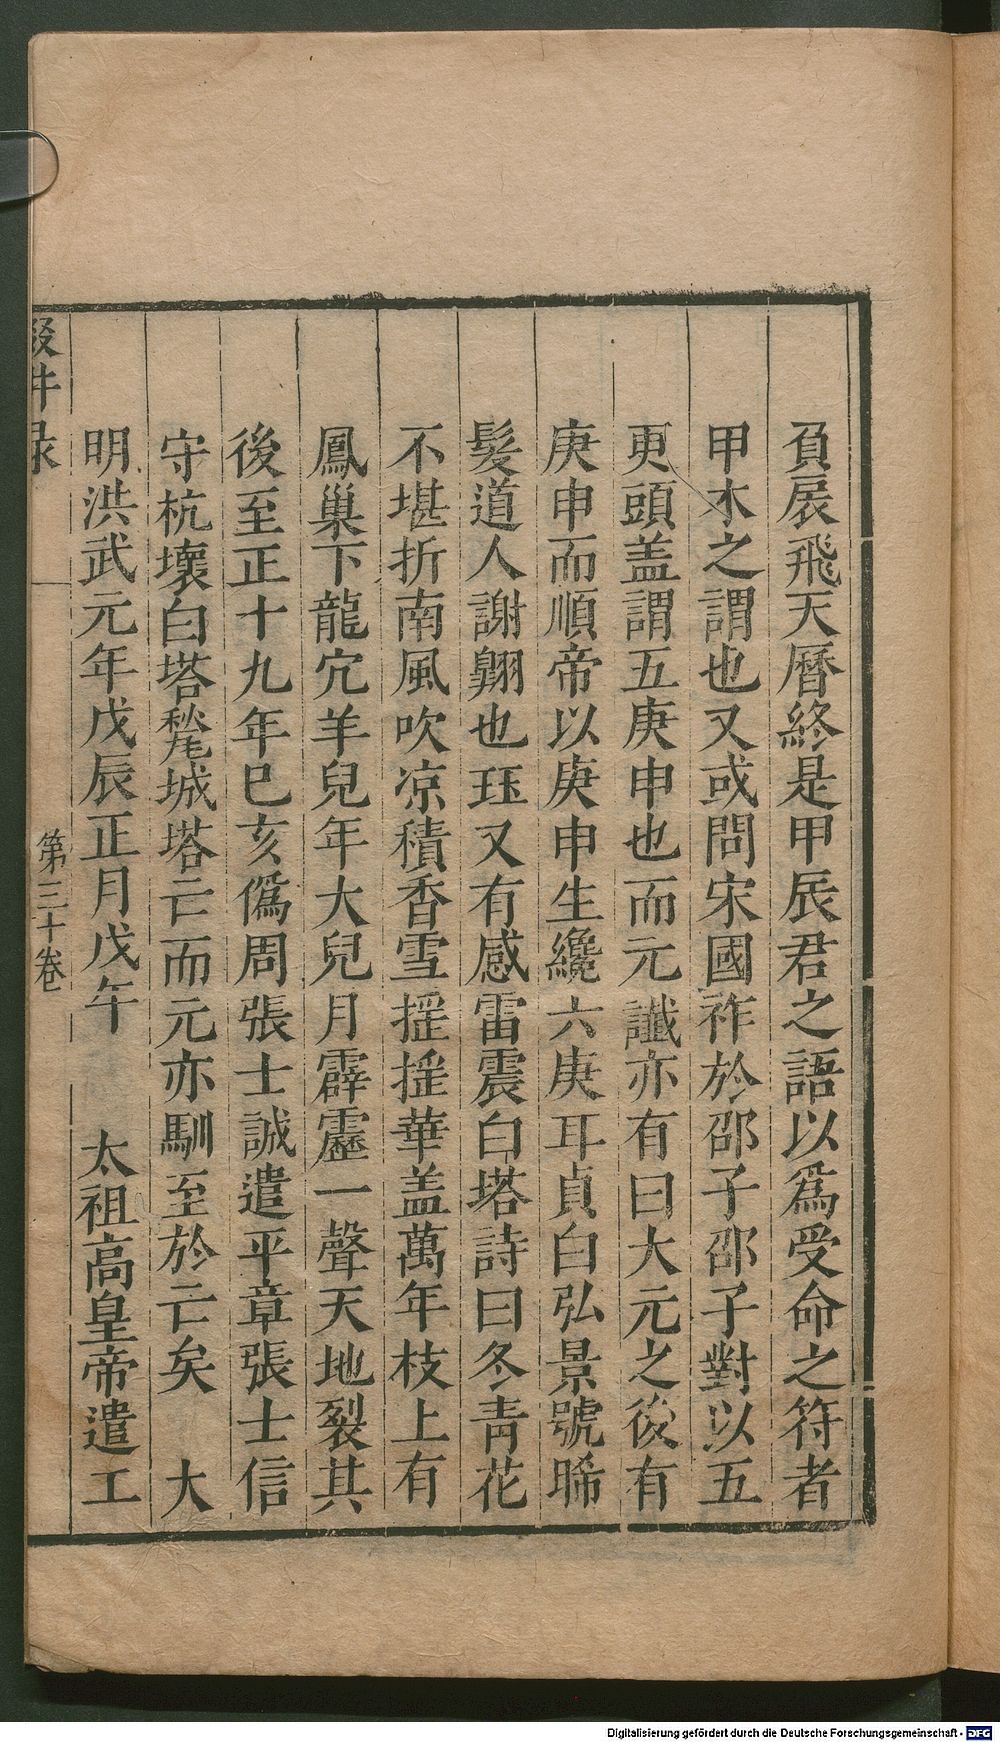 負扆飛天曆終是甲辰君之語以爲受命之符者
甲木之謂也又或問宋國祚於邵子邵子對以五
更頭盖謂五庚申也而元讖亦有曰大元之後有
庚申而順帝以庚申生纔六庚耳貞白弘景號晞
髮道人謝翺也珏又有感雷震白塔詩曰冬青花
不堪折南風吹凉積香雪搖搖華盖萬年枝上有
鳳巢下龍穴羊兒年大兒月霹靂一聲天地裂其
後至正十九年巳亥僞周張士誠遣平章張士信
守杭壞白塔甃城塔亡而元亦馴至於亡矣　大
明洪武元年戊辰正月戊午　太祖高皇帝遣工
輟耕录
第三十卷
Digitalisierung gefördert durch die Deutsche Forschungsgemeinschaft - DFG